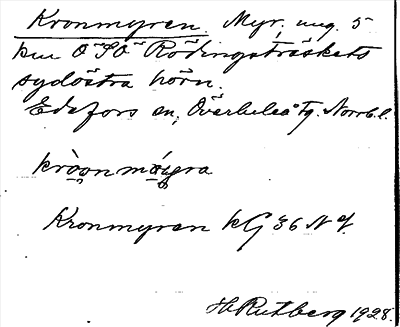 Kronmyren. Myr, ung. 5
km O SO Rödingsträskets
sydöstra hörn.
Edefors sn, Överluleå tg. Norrb. l.
Kronmyren kG 36 N
H. Rutberg 1928.